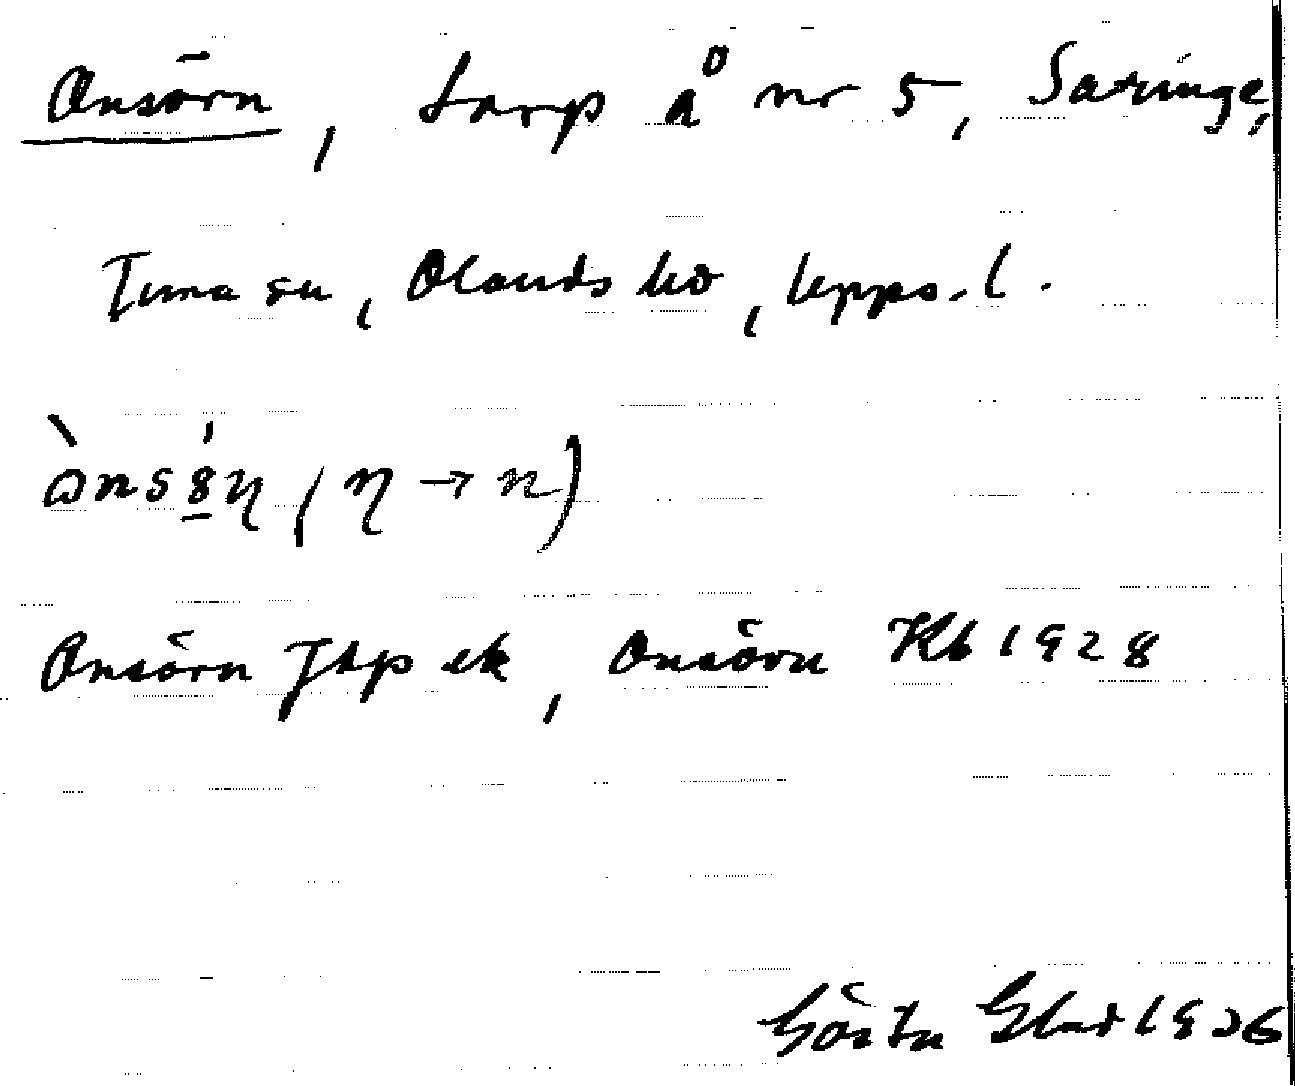 Onsörn, torp å nr 5, Saringe,
Tuna sn, Olands hd, Upps. l.
ɷ̀nsȣ́ɳ (ɳ → n)
Onsörn Jbp ek, Onsörn Kb 1928
Gösta 1936